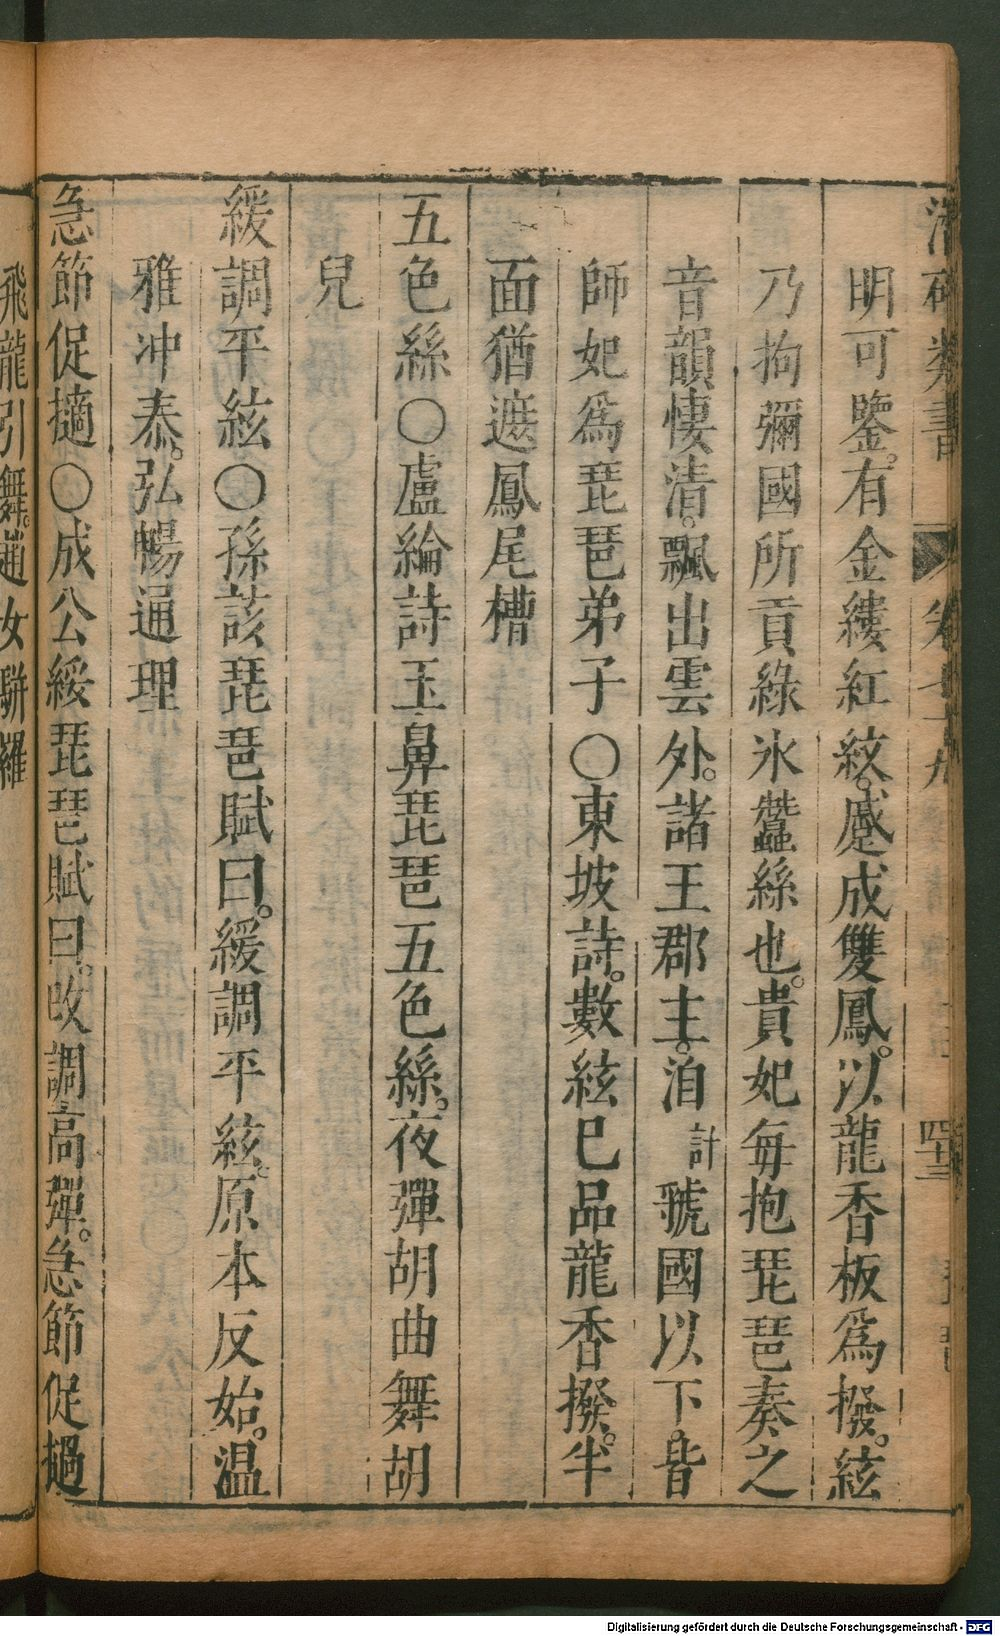 明可鑒。有金縷紅紋。蹙成雙鳳。以龍香板為撥。絃
乃拘彌國所貢綠氷蠶絲也。貴妃每抱琵琶奏之
音韻悽清。飄出雲外。諸王郡主。洎計虢國以下。皆
師妃為琵琶弟子○東坡詩。數絃已品龍香撥。半
面猶遮鳳尾槽
五色絲○盧綸詩玉鼻琵琶五色絲。夜彈胡曲舞胡
兒
緩調平絃○孫該琵琶賦曰。緩調平絃。原本反始。温
雅冲泰。弘暢通理
急節促擿○成公綏琵琶賦曰。改調高彈。急節促撾
飛龍引舞。趙女駢羅
Digitalisierung gefördert durch die Deutsche Forschungsgemeinschaft - DFG